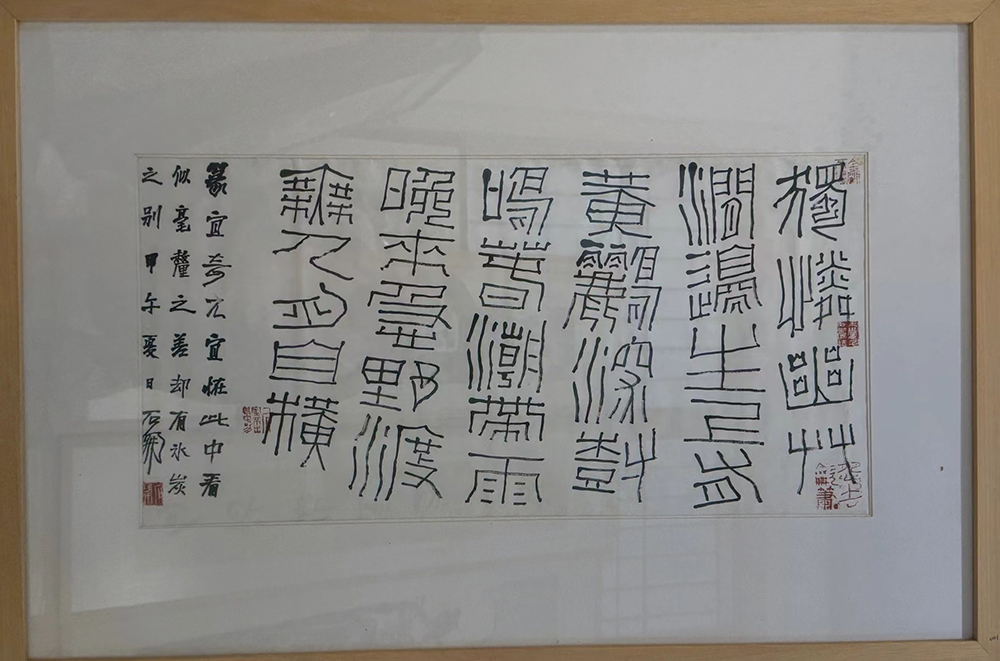 獨憐幽草
澗邊生上有
黃鸝深樹
鳴春潮帶雨
晚來急野渡
無人舟自橫
篆宜奇不宜怪此中看
似毫釐之差却有氷炭
之别甲午夏日石